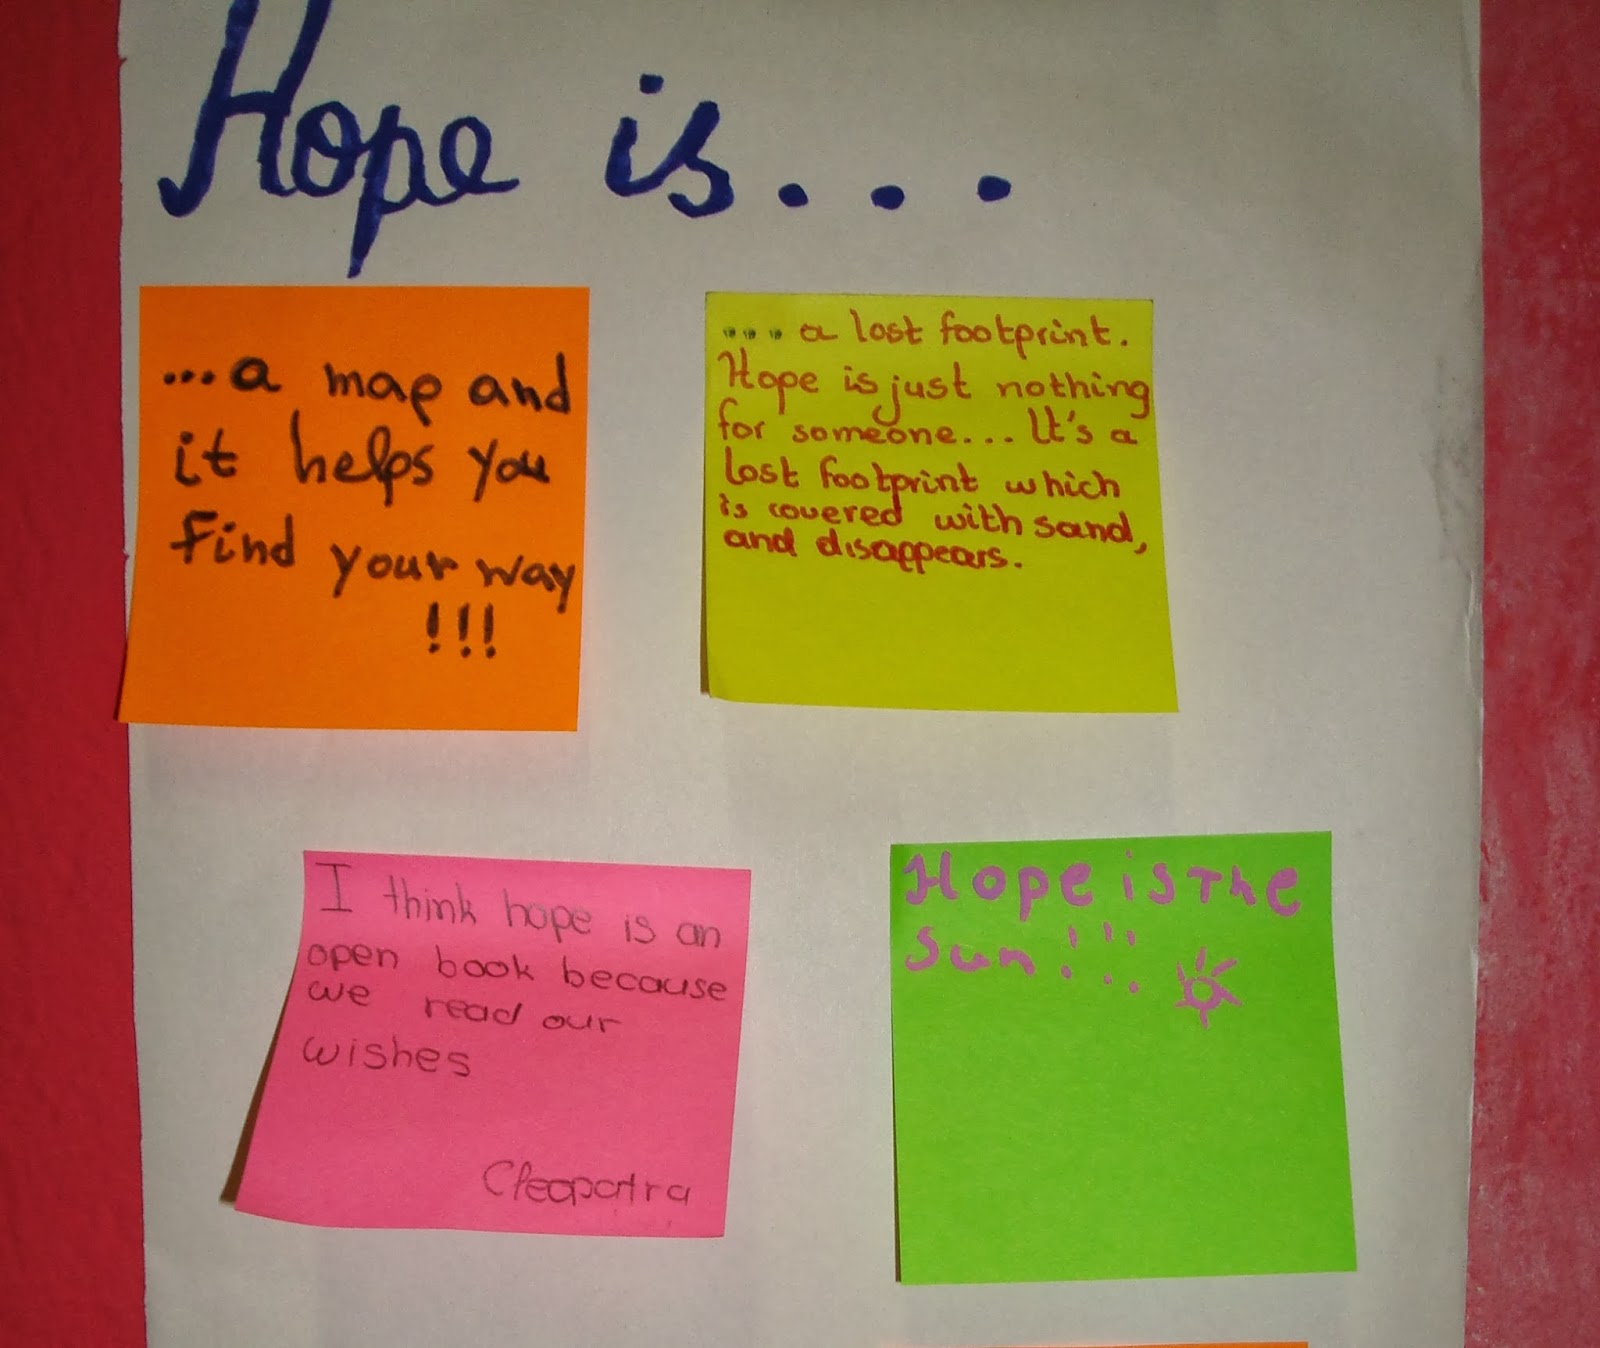 Hope is...
...a map and
it helps you
find your way
!!!
... a lost footprint.
Hope is just nothing
for someone... It's a
lost footprint which
is covered with sand,
and disappears.
I think hope is an
open book because
we read our
wishes
Cleopatra
Hope is The
sun!!!